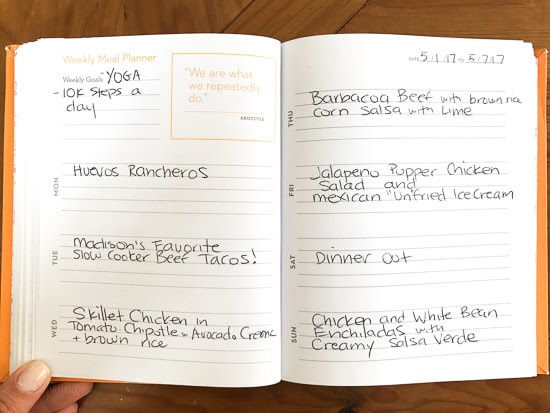 Weekly Meal Planner
Weekly Goals - YOGA
- 10K Steps a
day
"We are what
we repeatedly
do."
ARISTOTLE
MON
Huevos Rancheros
TUE
Madison's Favorite
Slow Cooker Beef Tacos!
WED
Skillet Chicken in
Tomato Chipotle w Avocado Creme
+ brown rice
DATE 5/1/17 to 5/7/17
THU
Barbacoa Beef with brown rice
corn salsa with Lime
FRI
Jalapeno Popper Chicken
Salad and
mexican "Unfried Ice Cream
SAT
Dinner Out
SUN
Chicken and White Bean
Enchiladas with
Creamy Salsa Verde